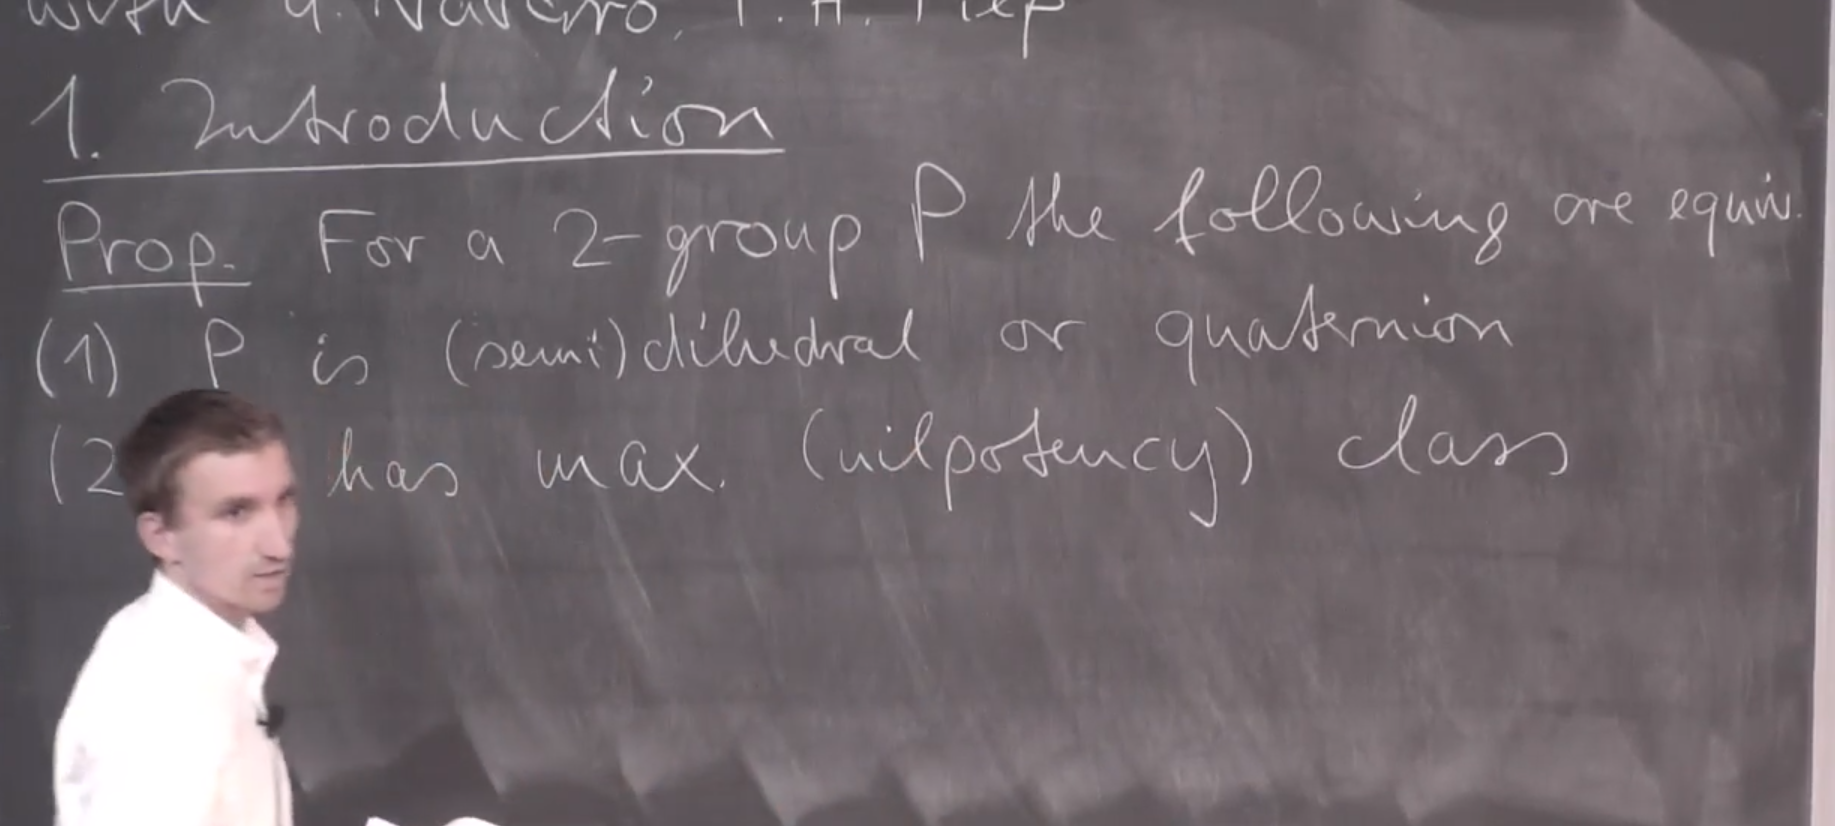 with G. Navarro, P. H. Tiep
1. Introduction
Prop. For a 2-group P the following are equiv.
(1) P is (semi)dihedral or quaternion
(2 has max. (nilpotency) class